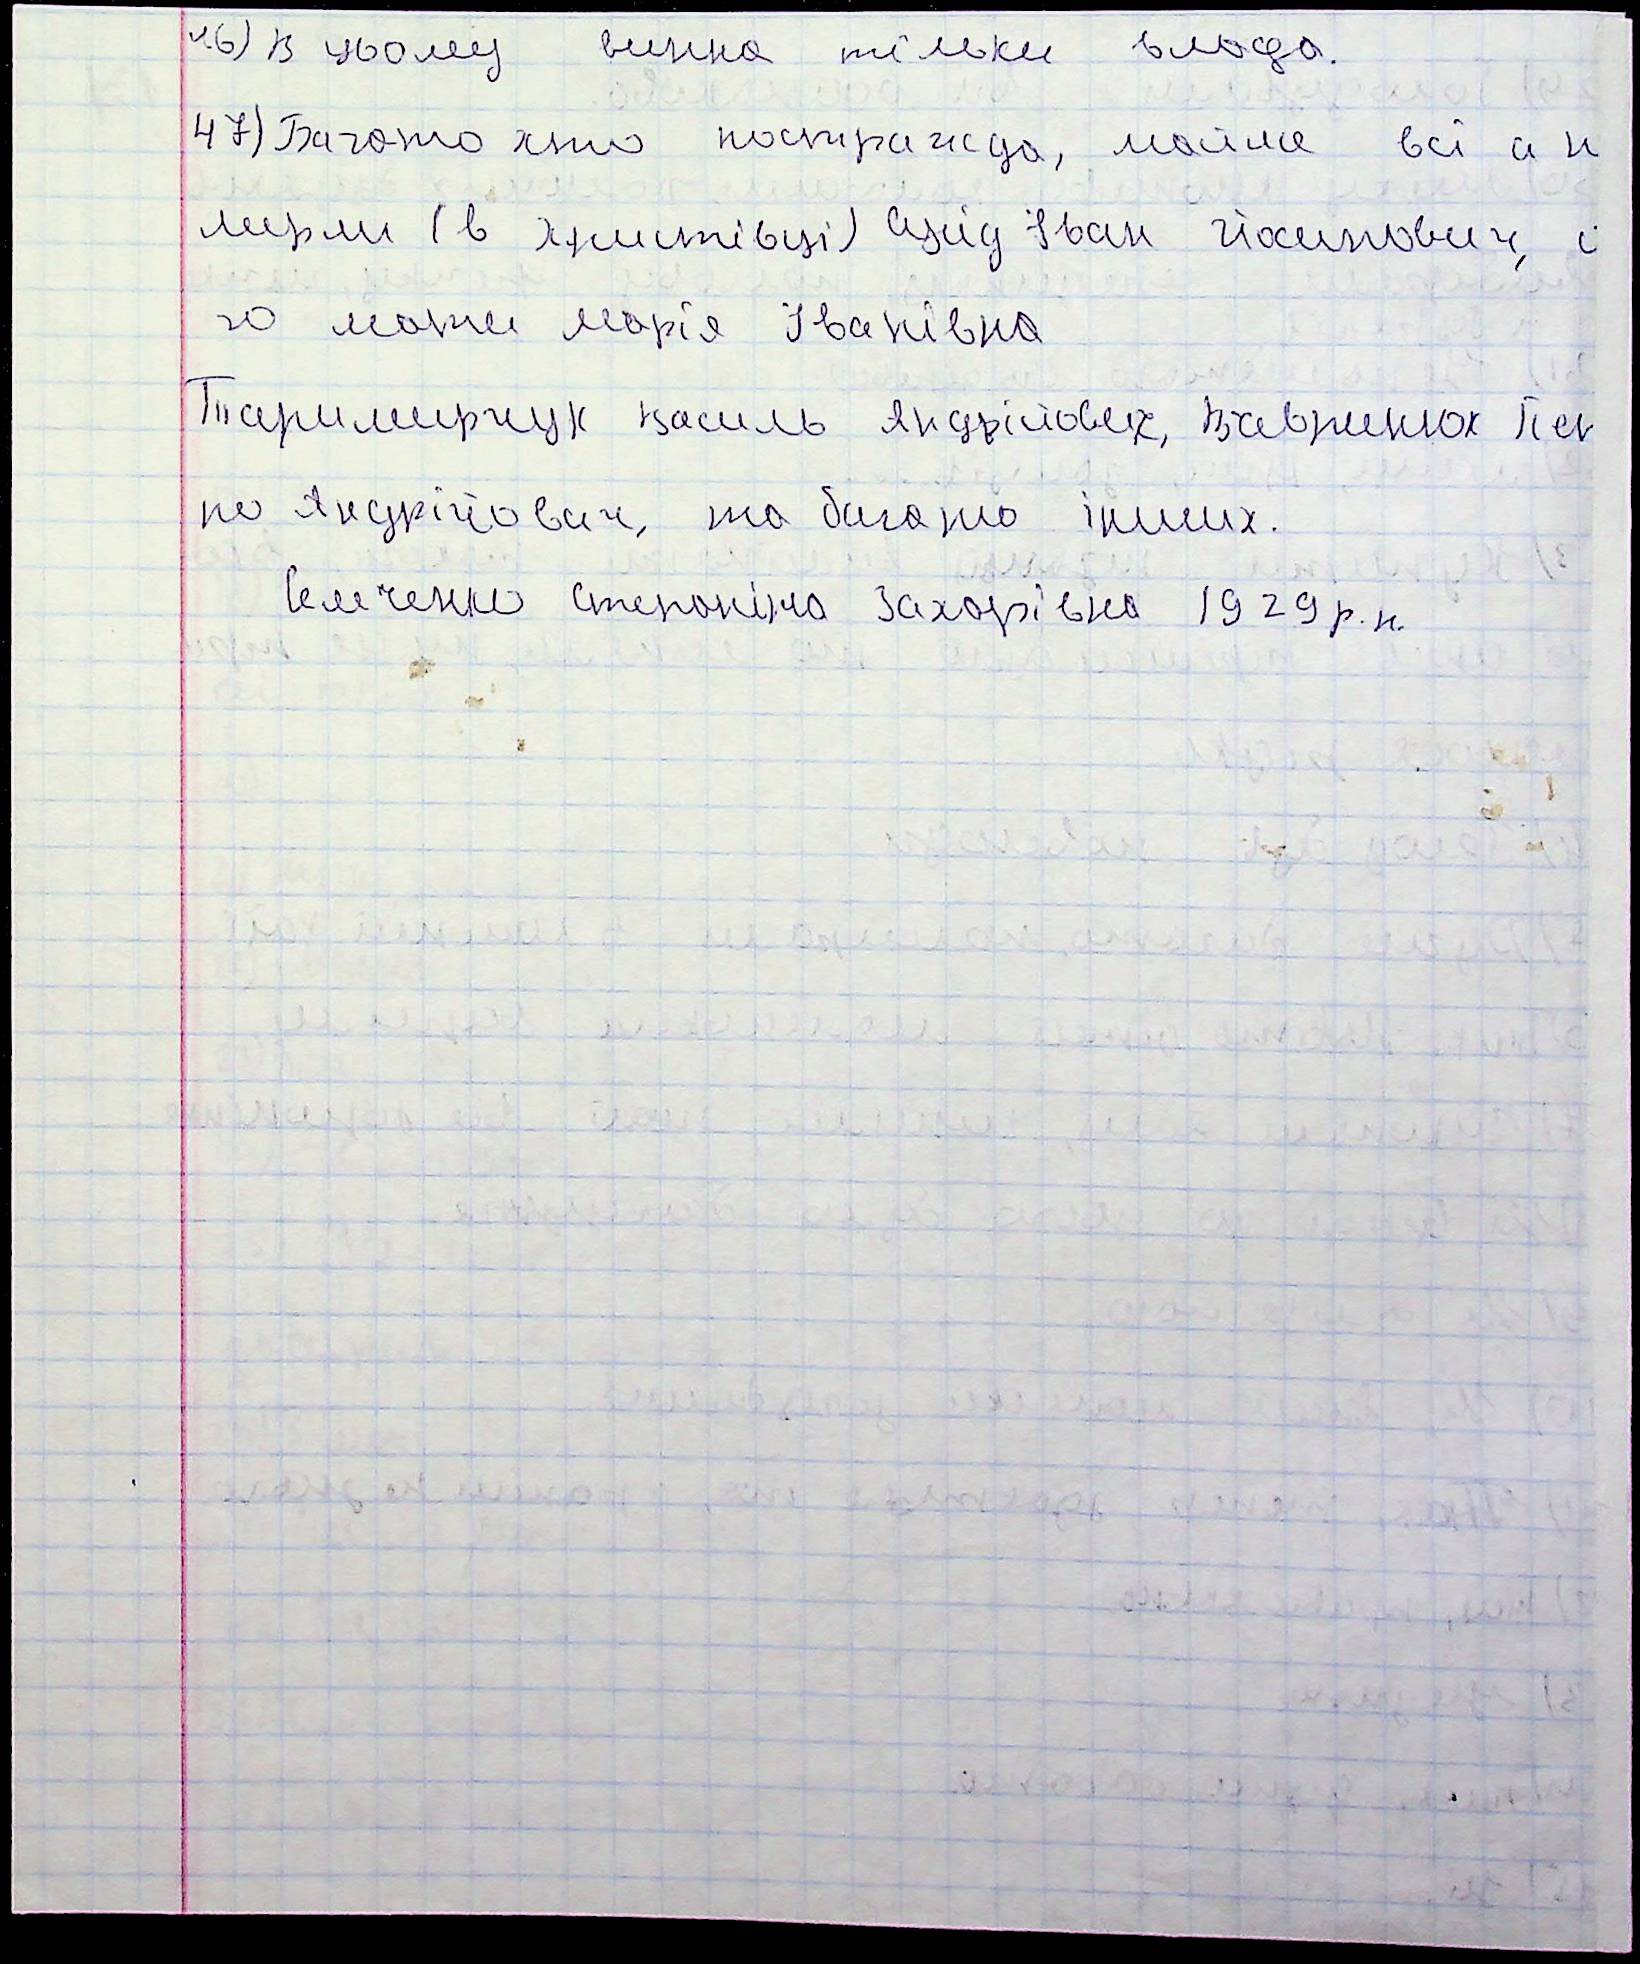 46) В цьому винна тільки влада.
47) Багато хто постражда, майже всі а п
мерли (в христівці) Яцід Іван Йосипович, і
го мати Марія Іванівна
Василь Андрійович, Вавринюх Пет
по Андрійович, та багато інших.
Семченко Степаніда Захарівна 1929 р.н.